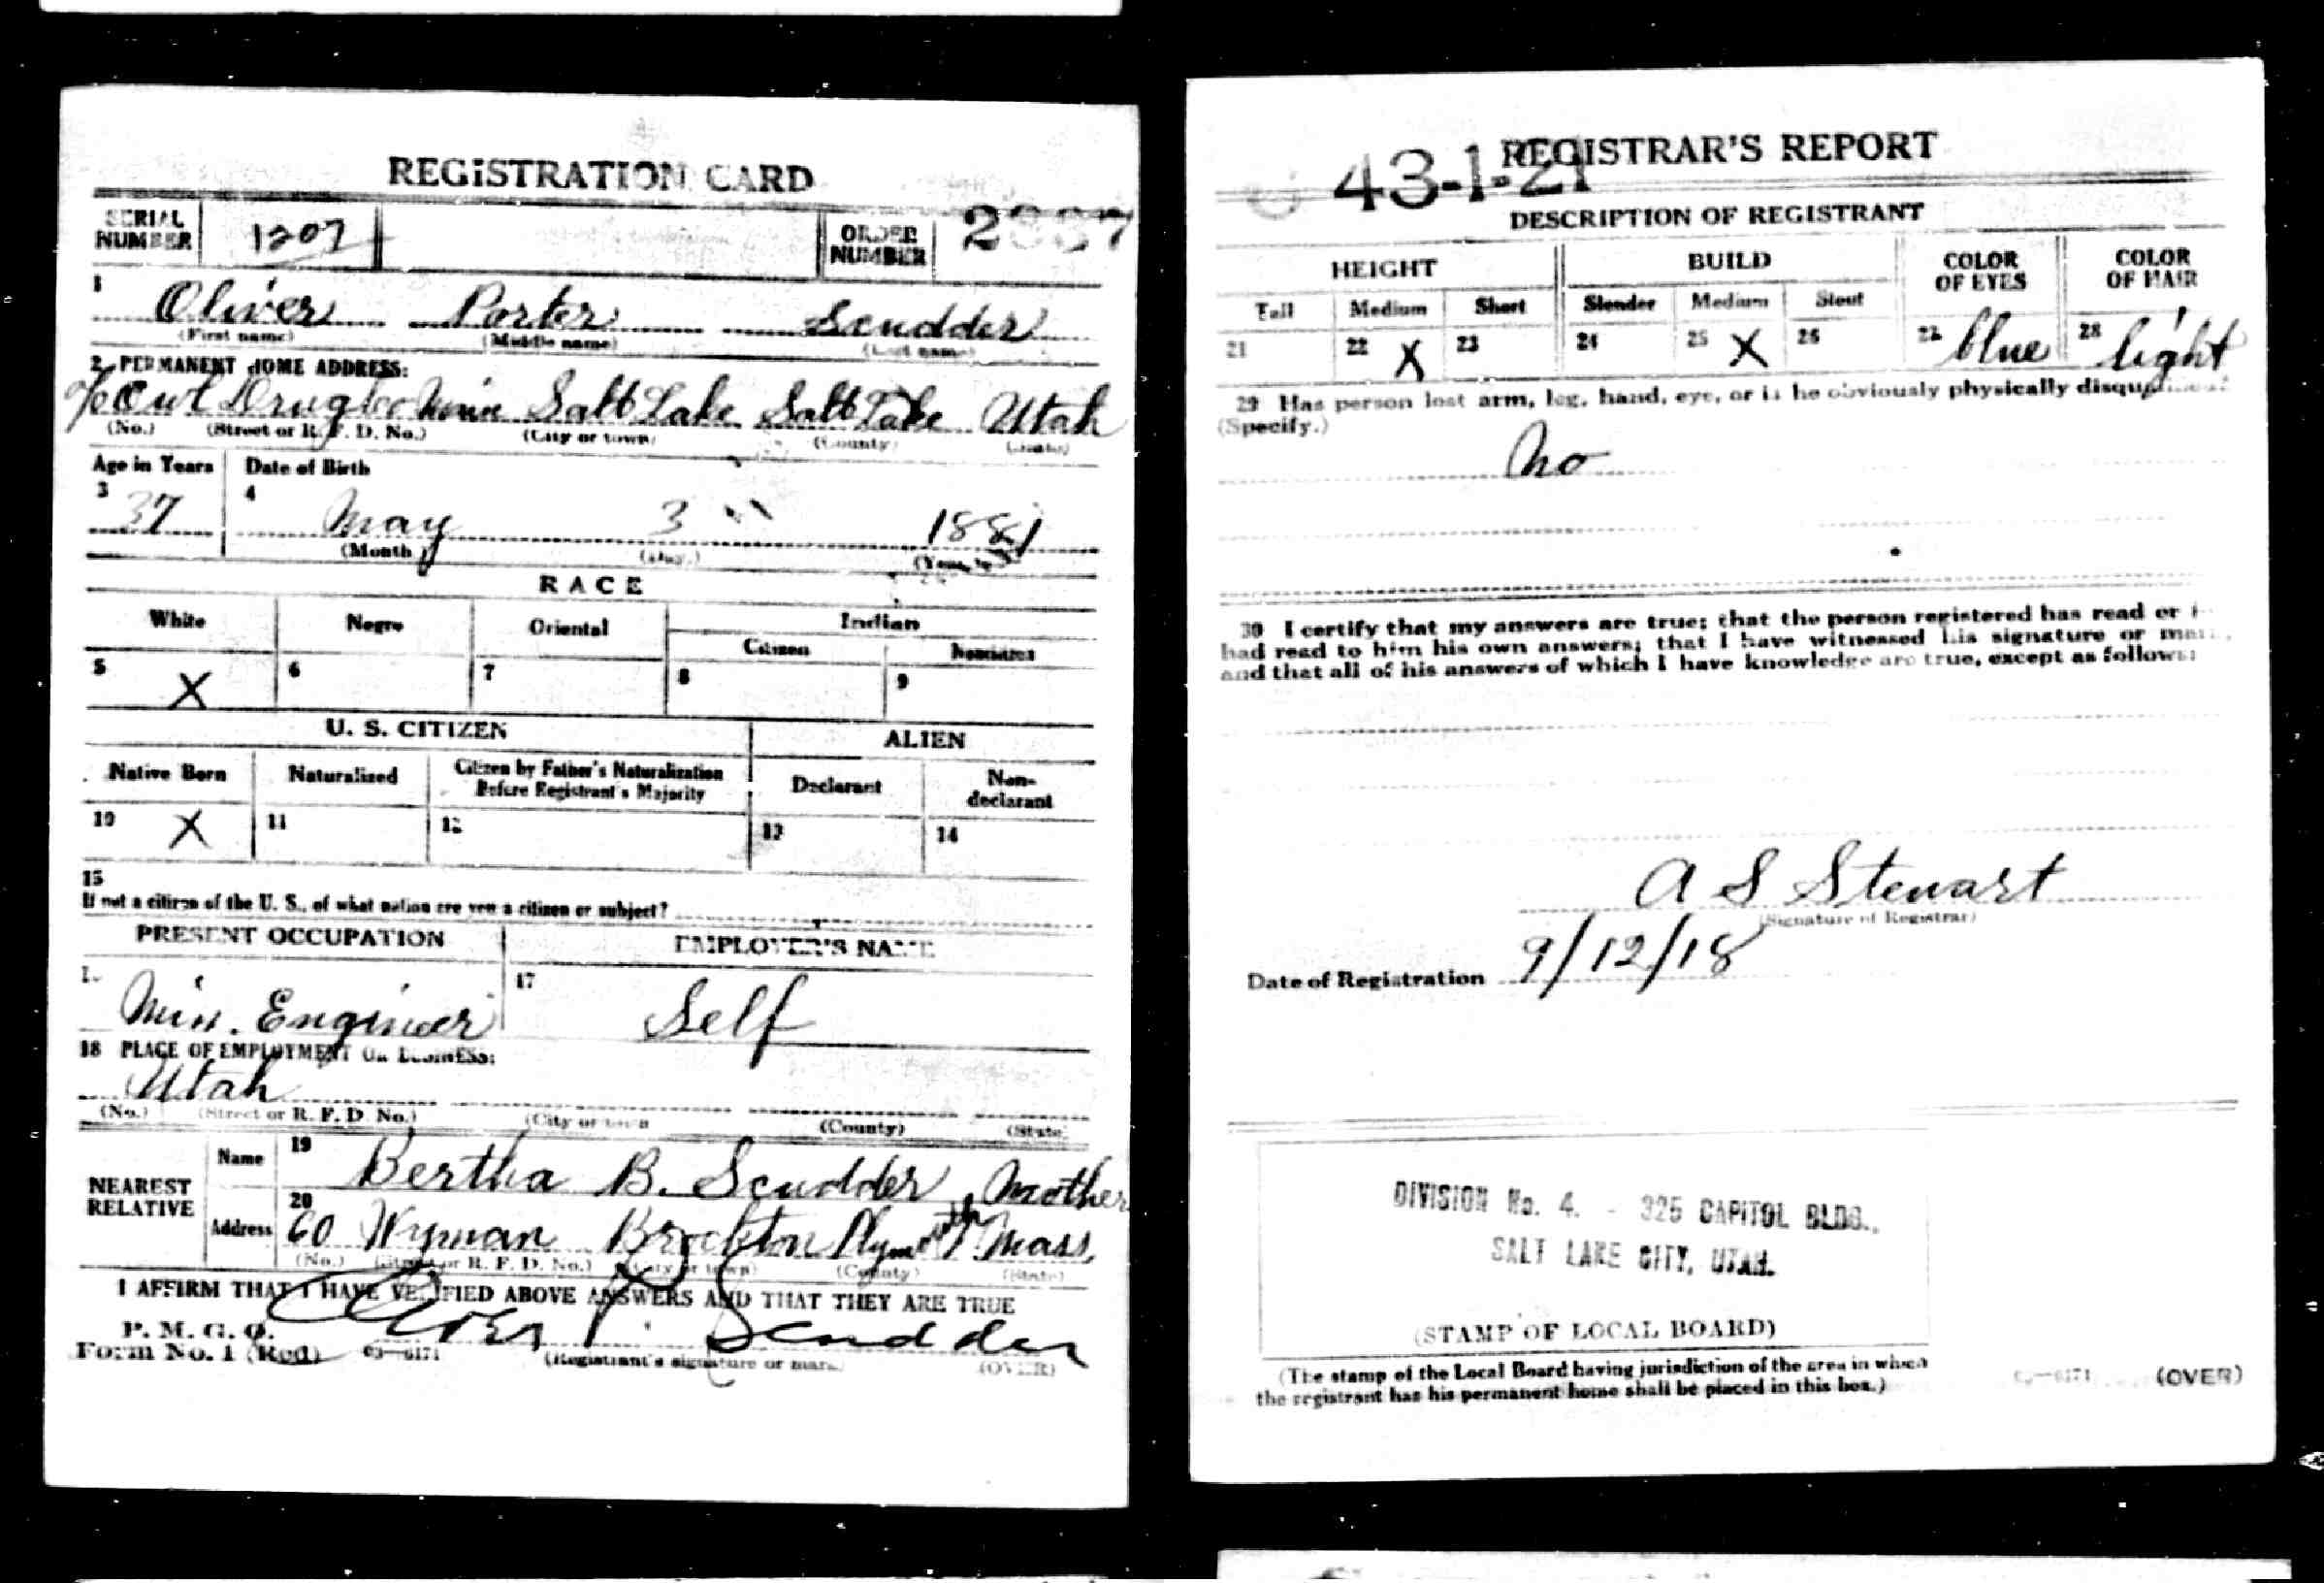 REGISTRATION CARD
SERIAL NUMBER 1207 ORDER NUMBER
1 Oliver Porter Scudder
(First name) (Middle name) (Last name)
2 PERMANENT HOME ADDRESS:
c/o Owl Drug Co Main Salt Lake Salt Lake Utah
(No.) (Street or R. F. D. No.) (City or town) (County) (State)
Age in Years Date of Birth
3 37 4 May 3 1881
(Month) (Day.)
RACE
White Negro Oriental Indian
Citizen Noncitizen
5 X 6 7 8 9
U. S. CITIZEN ALIEN
Native Born Naturalized Citizen by Father's Naturalization Before Registrant's Majority Declarant Non-declarant
10 X 11 12 13 14
15
If not a citizen of the U. S., of what nation are you a citizen or subject?
PRESENT OCCUPATION EMPLOYER'S NAME
Min. Engineer 17 Self
18 PLACE OF EMPLOYMENT OR BUSINESS:
Utah
(No.) (Street or R. F. D. No.) (City or town) (County) (State)
NEAREST RELATIVE Name 19 Bertha B. Scudder, Mother
Address 20 60 Wyman Brockton Plymouth Mass,
(No.) (Street or R. F. D. No.) (City or town) (County) (State)
I AFFIRM THAT I HAVE VERIFIED ABOVE ANSWERS AND THAT THEY ARE TRUE
P. M. G. O.
Form No. 1 (Red) 03—6171 Oliver P. Scudder
(Registrant's signature or mark) (OVER)
43-1-21 REGISTRAR'S REPORT
DESCRIPTION OF REGISTRANT
HEIGHT BUILD COLOR OF EYES COLOR OF HAIR
Tall Medium Short Slender Medium Stout
21 22 X 23 24 25 X 26 27 blue 28 light
29 Has person lost arm, leg, hand, eye, or is he obviously physically disqualified?
(Specify.)
No
30 I certify that my answers are true; that the person registered has read or
had read to him his own answers; that I have witnessed his signature or mark,
and that all of his answers of which I have knowledge are true, except as follows:
A S Stewart
(Signature of Registrar)
Date of Registration 9/12/18
DIVISION No. 4. - 325 CAPITOL BLDG.,
SALT LAKE CITY, UTAH.
(STAMP OF LOCAL BOARD)
(The stamp of the Local Board having jurisdiction of the area in which
the registrant has his permanent home shall be placed in this box.)
03—6171 (OVER)